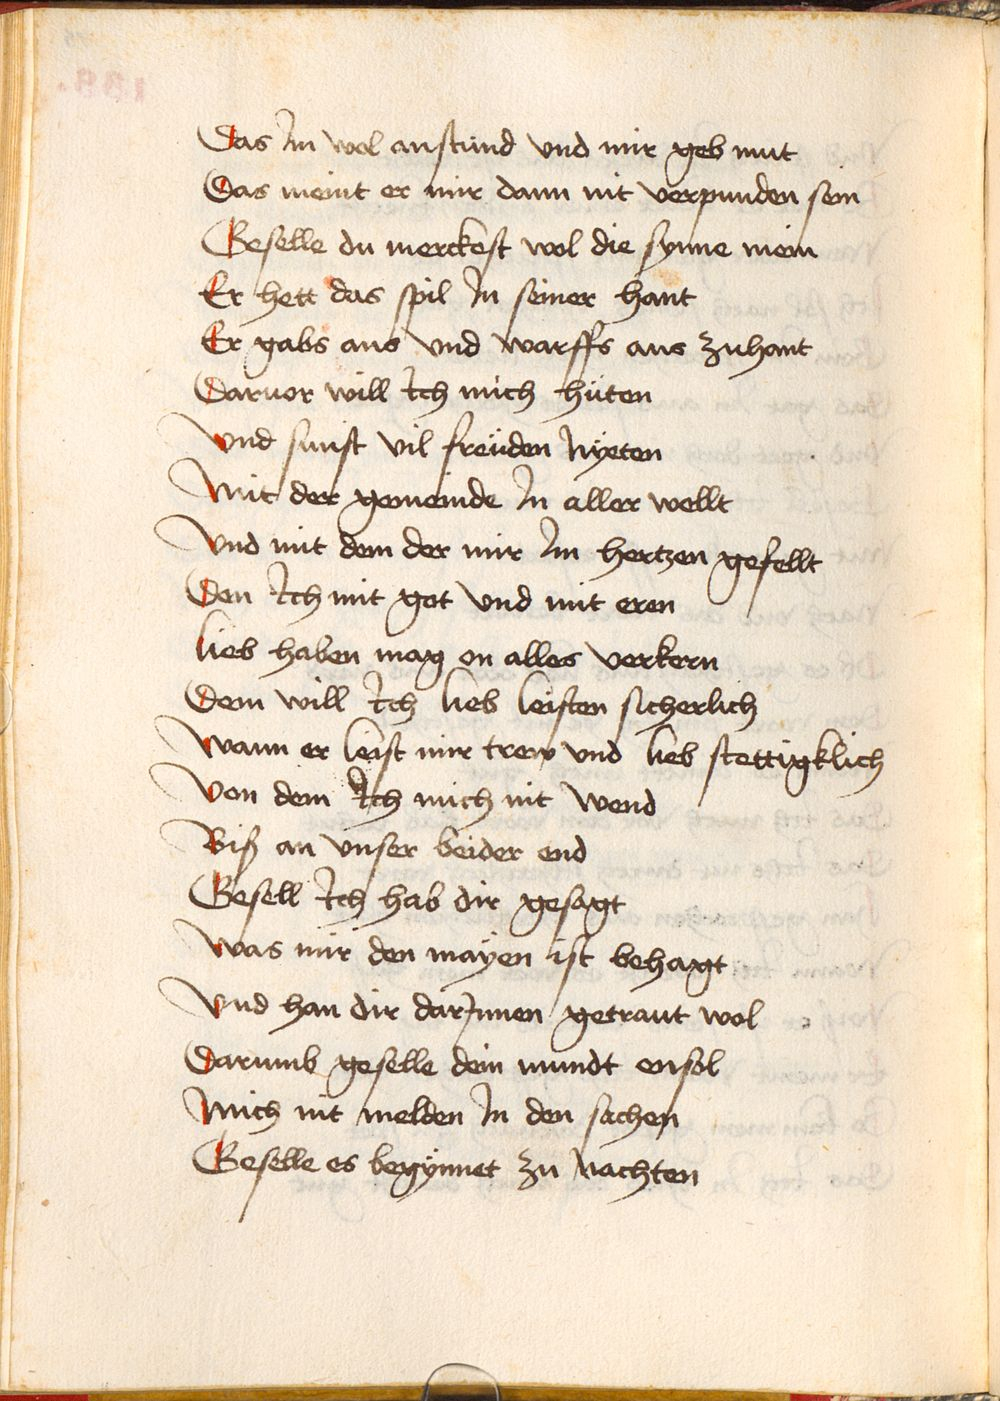 Das Im wol anstünd vnd mir geb mut
Das meint er mir dann nit verpunden sein
Geselle du merckest wol die synne mein
Er hett das spil In seiner hant
Er gabs aus vnd warffs aus zuhant
Daruor will Ich mich hüten
Vnd sunst vil freüden Nyeten
Mit der gemeinde In aller wellt
Vnd mit dem der mir Im hertzen gefellt
Den Ich mit got vnd mit eren
lieb haben mag on alles verkern
Dem will Ich lieb leisten sicherlich
Wann er leist mir trew vnd lieb stettigklich
Von dem Ich mich nit wend
Biß an vnser beider end
Gesell Ich hab dir gesagt
Was mir den mayen ist behagt
Vnd han dir darInnen getraut wol
Darumb geselle dein mundt ensol
Mich nit melden In den sachen
Geselle es begynnet zu Nachten